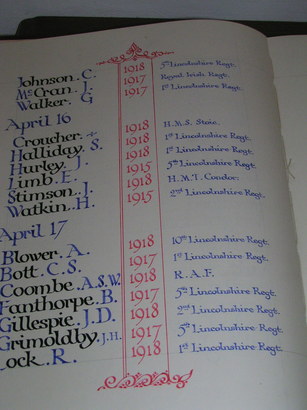 Johnson. C. 1918 5th Lincolnshire Regt.
McCran. J. 1917 Royal Irish Regt.
Walker. G 1917 1st Lincolnshire Regt.
April 16
Croucher. 1918 H.M.S.
Halliday. S. 1918 1st Lincolnshire Regt.
Hurley. J. 1918 1st Lincolnshire Regt.
Limb. E. 1915 5th Lincolnshire Regt.
Stimson. J. 1918 H.M.T. Condor.
Watkin. H. 1915 2nd Lincolnshire Regt.
April 17
Blower. A. 1918 10th Lincolnshire Regt.
Bott. C.S. 1917 1st Lincolnshire Regt.
Coombe. A.S.W. 1918 R.A.F.
Fanthorpe. B. 1917 5th Lincolnshire Regt.
Gillespie. J.D. 1918 2nd Lincolnshire Regt.
Grimoldby. J.H. 1917 5th Lincolnshire Regt.
ock. R. 1918 1st Lincolnshire Regt.